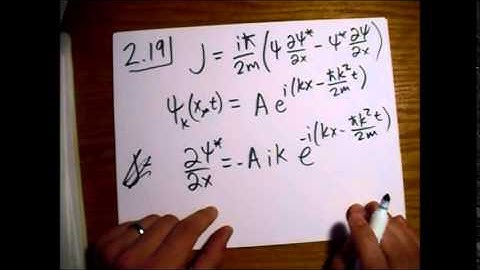 2.19 J = iħ/2m (Ψ ∂Ψ*/∂x - Ψ* ∂Ψ/∂x)
Ψ_k(x,t) = A e^{i(kx - ħk²t/2m)}
∂Ψ*/∂x = -A i k e^{-i(kx - ħk²t/2m)}